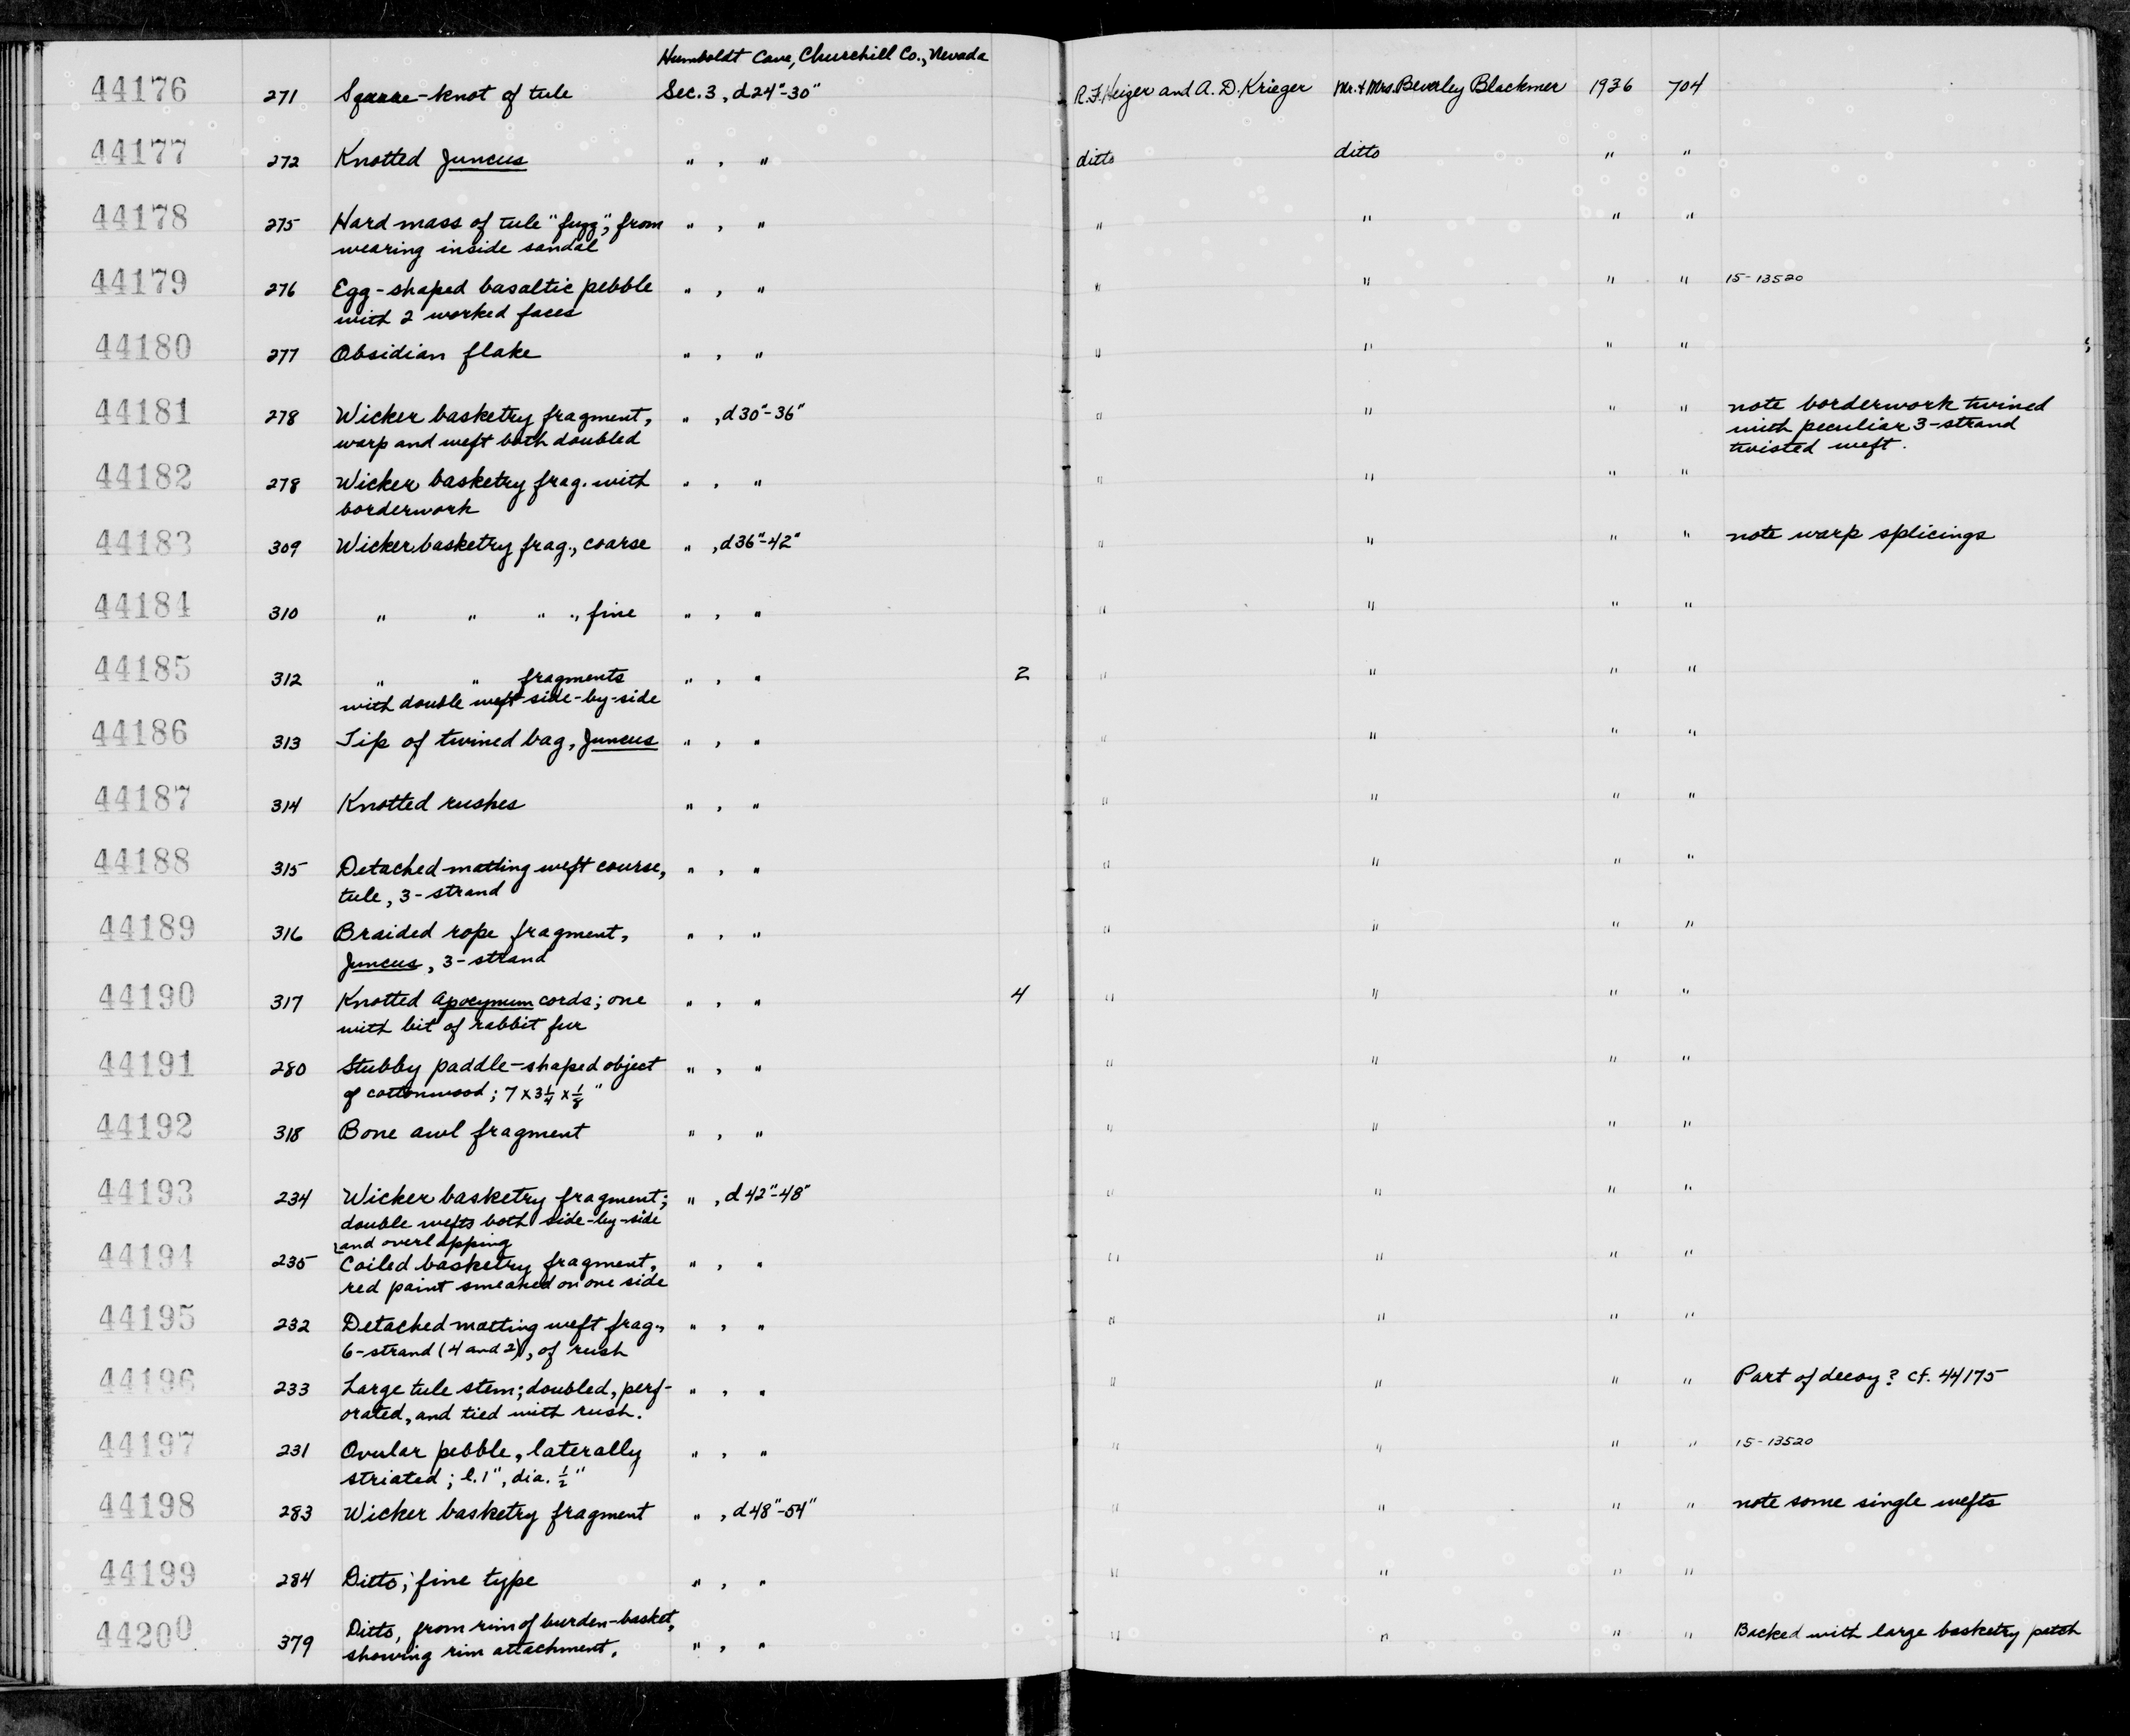 Humboldt Cave, Churchill Co., Nevada
44176 271 Square-knot of tule Sec. 3, d24"-30" R.F. Heizer and A. D. Krieger Mr. + Mrs. Beverley Blackmer 1936 704
44177 272 Knotted Juncus " , " ditto ditto " "
44178 275 Hard mass of tule "fuzz", from " , " " " " "
wearing inside sandal
44179 276 Egg-shaped basaltic pebble " , " " " " " 15-13520
with 2 worked faces
44180 277 Obsidian flake " , " " " " "
44181 278 Wicker basketry fragment, " , d30"-36" " " " " note borderwork twined
warp and weft both doubled with peculiar 3-strand
twisted weft.
44182 278 Wicker basketry frag. with " , " " " " "
borderwork
44183 309 Wicker basketry frag., coarse " , d36"-42" " " " " note warp splicings
44184 310 " " " ., fine " , " " " " "
44185 312 " " fragments " , " 2 " " " "
with double weft side-by-side
44186 313 Tip of twined bag, Juncus " , " " " " "
44187 314 Knotted rushes " , " " " " "
44188 315 Detached matting weft course, " , " " " " "
tule, 3-strand
44189 316 Braided rope fragment, " , " " " " "
Juncus, 3-strand
44190 317 Knotted Apocynum cords; one " , " 4 " " " "
with bit of rabbit fur
44191 280 Stubby paddle-shaped object " , " " " " "
of cottonwood; 7 x 3 1/4 x 1/8 "
44192 318 Bone awl fragment " , " " " " "
44193 234 Wicker basketry fragment; " , d42"-48" " " " "
double wefts both side-by-side
and overlapping
44194 235 Coiled basketry fragment, " , " " " " "
red paint smeared on one side
44195 232 Detached matting weft frag., " , " " " " "
6-strand (4 and 2), of rush
44196 233 Large tule stem; doubled, perf- " , " " " " " Part of decoy? cf. 44175
orated, and tied with rush.
44197 231 Ovular pebble, laterally " , " " " " " 15-13520
striated; l. 1", dia. 1/2"
44198 283 Wicker basketry fragment " , d48"-54" " " " " note some single wefts
44199 284 Ditto; fine type " , " " " " "
44200 379 Ditto, from rim of burden-basket, " , " " " " " Backed with large basketry patch
showing rim attachment.